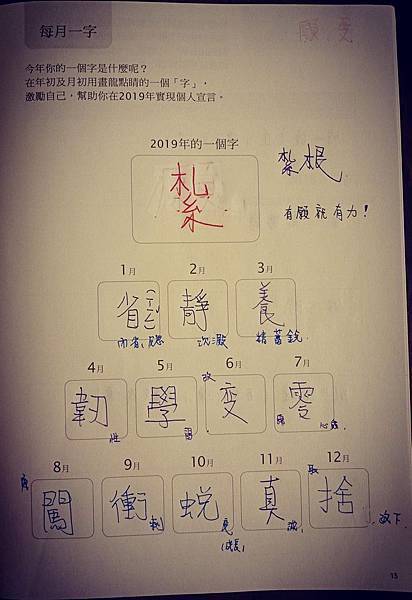 每月一字
今年你的一個字是什麼呢？
在年初及月初用畫龍點睛的一個「字」，
激勵自己，幫助你在2019年實現個人宣言。
2019年的一個字
紮
紮根
有願就有力！
1月 2月 3月
省(ㄒㄧㄥˇ) 靜 養
內省、反思 沈澱 精蓄銳
4月 5月 6月 7月
韌性 學習 改变 零
心態
8月 9月 10月 11月 12月
闖 衝刺 蛻變 真誠 取捨
(成長) 放下
15